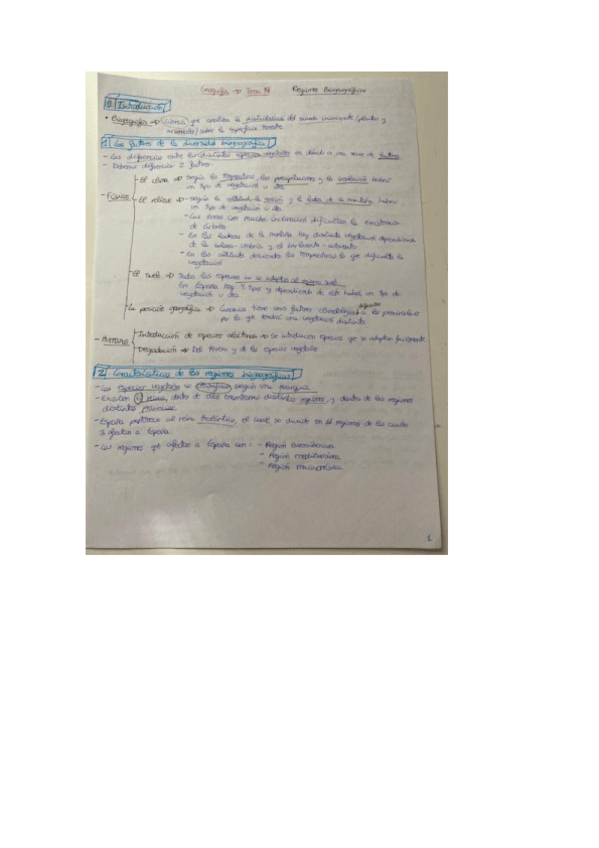 Geografía → Tema 4 Regiones Biogeográficas
0. Introducción
• Biogeografía → Ciencia que analiza la distribución del mundo viviente (plantas y
animales) sobre la superficie terrestre
1. Los factores de la diversidad biogeográfica
- Las diferencias entre las distintas especies vegetales es debido a una serie de factores
- Debemos diferenciar 2 factores:
- FÍSICOS
- El clima → según la temperatura, las precipitaciones y la insolación habrá
un tipo de vegetación u otra
- El relieve → según la altitud, la y la ladera de la montaña habrá
un tipo de vegetación u otra
- Las zonas con mucha inclinación dificultan la existencia
de árboles
- En las laderas de la montaña hay distinta vegetación dependiendo
de la solana-umbría y el barlovento-sotavento
- En la altitud descienden las temperaturas lo que dificulta la
vegetación
- El suelo → Todas las especies no se adaptan al mismo suelo
En España hay 3 tipos y dependiendo de este habrá un tipo de
vegetación u otra
- La posición geográfica → Canarias tiene unos factores climatológicos distintos a los peninsulares
por lo que tendrá una vegetación distinta
- HUMANOS
- Introducción de especies alóctonas → se introducen especies que se adaptan fácilmente
- Degradación → Del terreno y de las especies vegetales
2. Características de las regiones biogeográficas
- Las especies vegetales se según una jerarquía
- Existen reinos, dentro de ellos encontramos distintas regiones, y dentro de las regiones
distintas provincias.
- España pertenece al reino Holártico, el cual se divide en regiones de las cuales
3 afectan a España.
- Las regiones que afectan a España son: - Región eurosiberiana
- Región mediterránea
- Región macaronésica
1